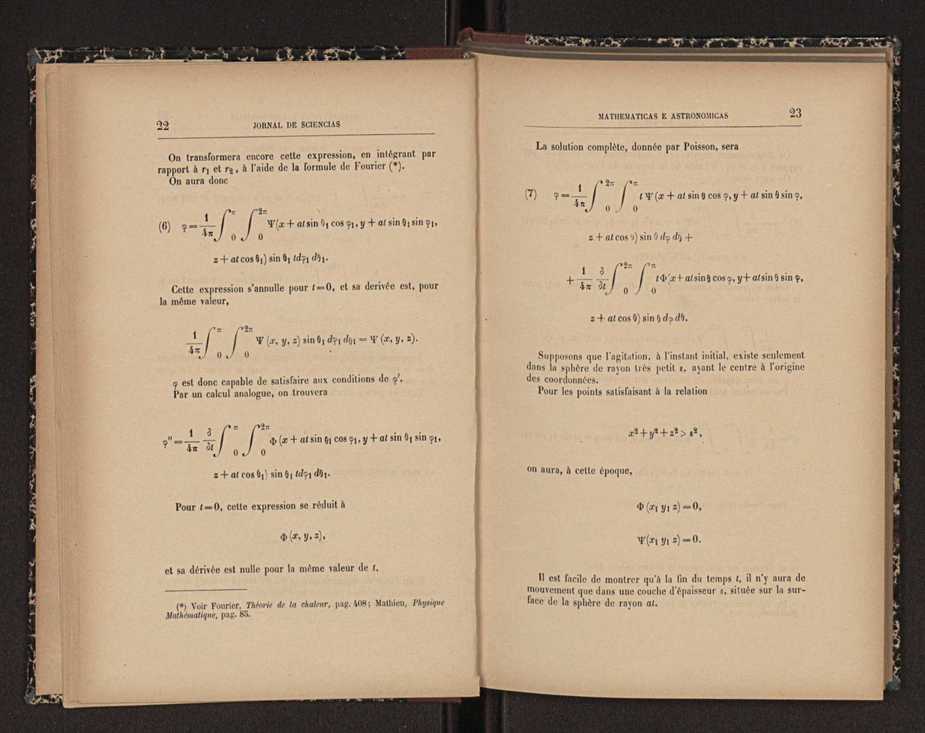 22 JORNAL DE SCIENCIAS
On transformera encore cette expression, en intégrant par
rapport à r₁ et r₂, à l'aide de la formule de Fourier (*).
On aura donc
(6) φ = 1/4π ∫₀^π ∫₀^2π Ψ(x + at sin θ₁ cos φ₁, y + at sin θ₁ sin φ₁,
z + at cos θ₁) sin θ₁ tdφ₁ dθ₁.
Cette expression s'annulle pour t=0, et sa derivée est, pour
la même valeur,
1/4π ∫₀^π ∫₀^2π Ψ (x, y, z) sin θ₁ dφ₁ dθ₁ = Ψ (x, y, z).
φ est donc capable de satisfaire aux conditions de φ'.
Par un calcul analogue, on trouvera
φ'' = 1/4π ∂/∂t ∫₀^π ∫₀^2π Φ (x + at sin θ₁ cos φ₁, y + at sin θ₁ sin φ₁,
z + at cos θ₁) sin θ₁ tdφ₁ dθ₁.
Pour t=0, cette expression se réduit à
Φ (x, y, z),
et sa dérivée est nulle pour la même valeur de t.
(*) Voir Fourier, Théorie de la chaleur, pag. 408; Mathieu, Physique
Mathématique, pag. 85.
MATHEMATICAS E ASTRONOMICAS 23
La solution complète, donnée par Poisson, sera
(7) φ = 1/4π ∫₀^2π ∫₀^π t Ψ (x + at sin θ cos φ, y + at sin θ sin φ,
z + at cos θ) sin θ dφ dθ +
+ 1/4π ∂/∂t ∫₀^2π ∫₀^π tΦ(x + at sin θ cos φ, y + at sin θ sin φ,
z + at cos θ) sin θ dφ dθ.
Supposons que l'agitation, à l'instant initial, existe seulement
dans la sphère de rayon très petit ε, ayant le centre à l'origine
des coordonnées.
Pour les points satisfaisant à la relation
x² + y² + z² > ε²,
on aura, à cette époque,
Φ (x₁ y₁ z) = 0,
Ψ(x₁ y₁ z) = 0.
Il est facile de montrer qu'à la fin du temps t, il n'y aura de
mouvement que dans une couche d'épaisseur ε, située sur la sur-
face de la sphère de rayon at.